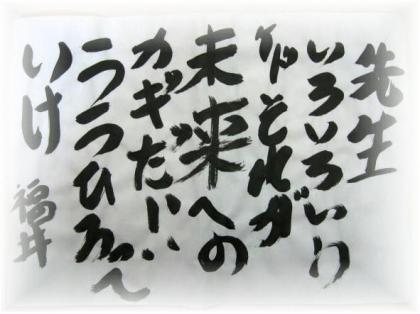 先生
いろいろいう
けどそれが
未来への
カギだ!!
一つ一つひろって
いけ 福井